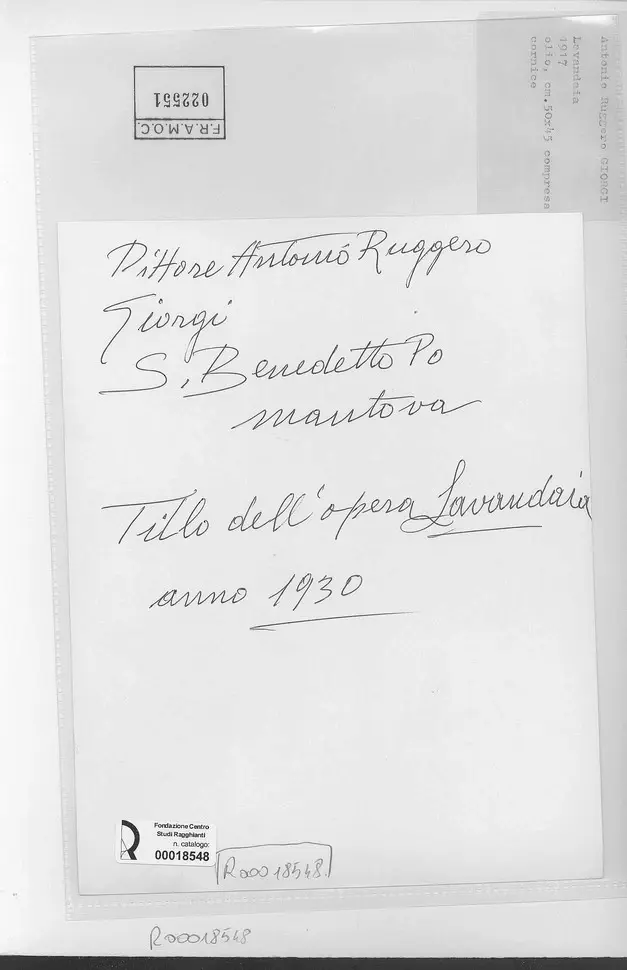 022551
F.R.A.M.O.C.
Antonio Ruggero GIORGI
Lavandaia
1917
olio, cm.50x45 compresa
cornice
Pittore Antonio Ruggero
Giorgi
S. Benedetto Po
mantova
Titlo dell'opera Lavandaia
anno 1930
Fondazione Centro
Studi Ragghianti
n. catalogo:
00018548
R00018548
R00018548